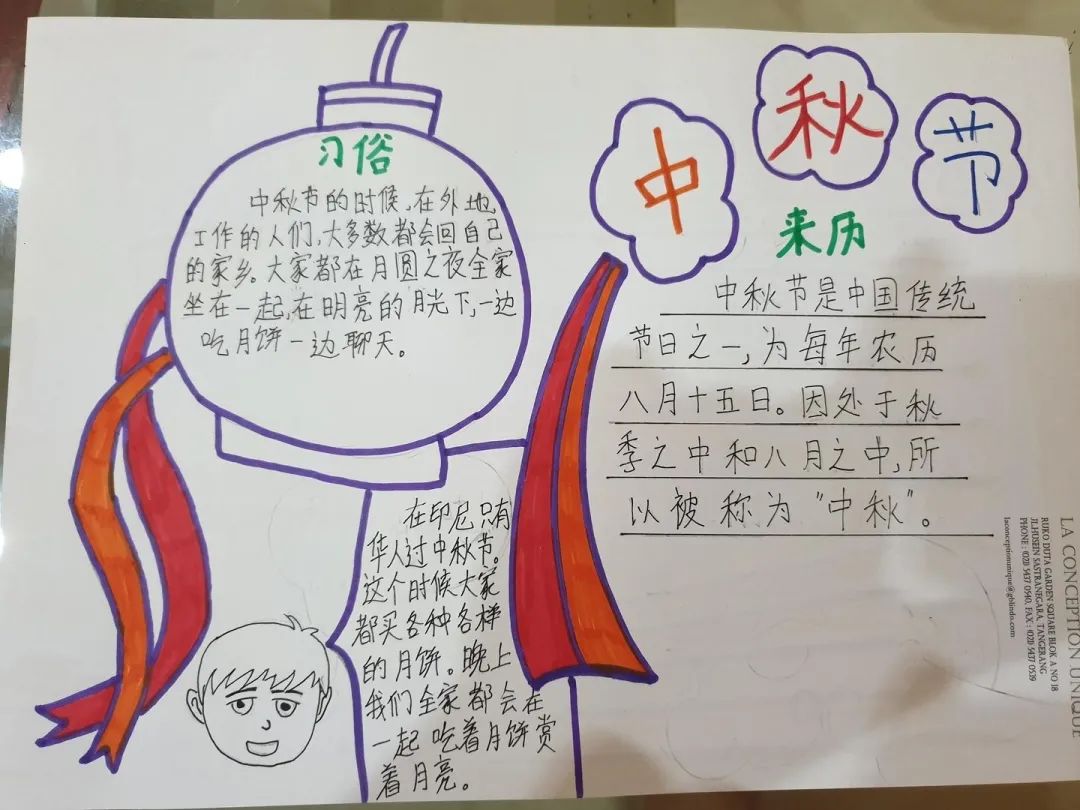 中秋节
习俗
中秋节的时候,在外地
工作的人们,大多数都会回自己
的家乡。大家都在月圆之夜全家
坐在一起,在明亮的月光下,一边
吃月饼一边聊天。
来历
中秋节是中国传统
节日之一,为每年农历
八月十五日。因处于秋
季之中和八月之中,所
以被称为“中秋”。
在印尼只有
华人过中秋节。
这个时候大家
都买各种各样
的月饼。晚上
我们全家都会在
一起吃着月饼赏
着月亮。
LA CONCEPTION UNIQUE
RUKO DUTA GARDEN SQUARE BLOK A NO 18
JL.HUSEIN SASTRANEGARA, TANGERANG
PHONE : (021) 5437 0540, FAX : (021) 5437 0539
laconceptionunique@gblindo.com